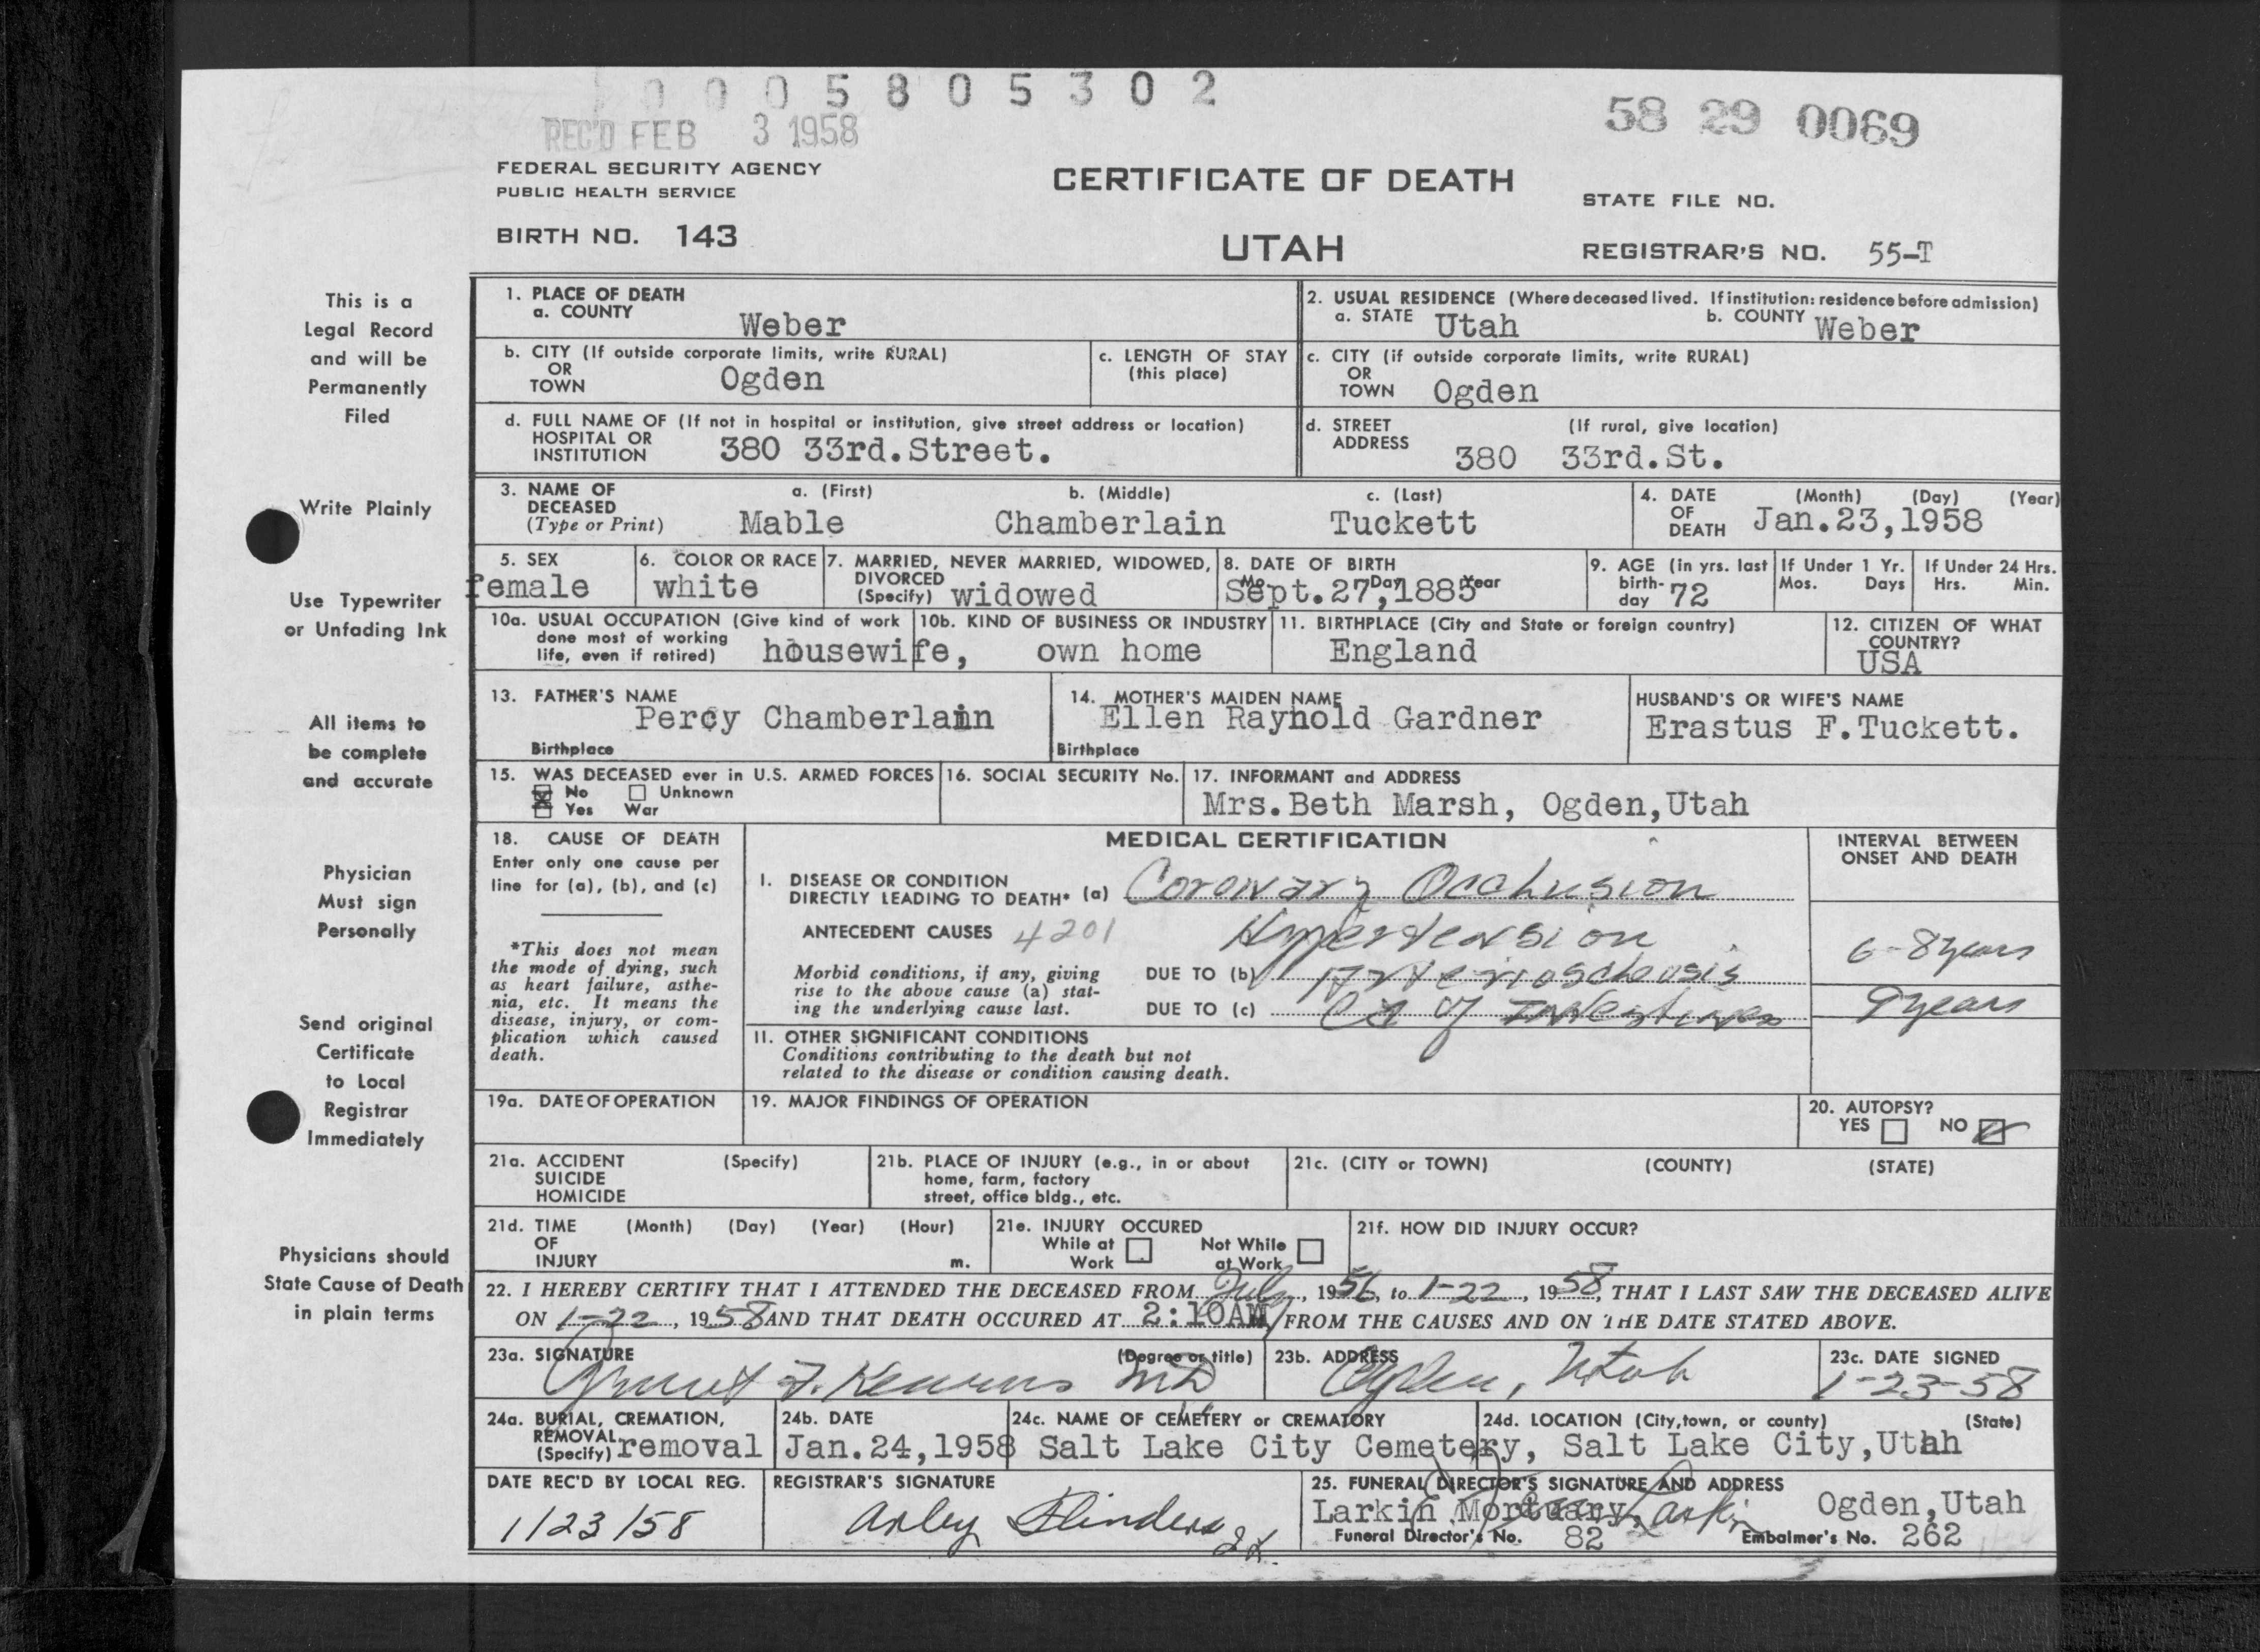 0 0 0 5 8 0 5 3 0 2
REC'D FEB 3 1958
58 29 0069
FEDERAL SECURITY AGENCY
PUBLIC HEALTH SERVICE
CERTIFICATE OF DEATH
STATE FILE NO.
BIRTH NO. 143
UTAH
REGISTRAR'S NO. 55-T
This is a
Legal Record
and will be
Permanently
Filed
Write Plainly
Use Typewriter
or Unfading Ink
All items to
be complete
and accurate
Physician
Must sign
Personally
Send original
Certificate
to Local
Registrar
Immediately
Physicians should
State Cause of Death
in plain terms
1. PLACE OF DEATH
a. COUNTY
Weber
2. USUAL RESIDENCE (Where deceased lived. If institution: residence before admission)
a. STATE Utah b. COUNTY Weber
b. CITY (If outside corporate limits, write RURAL)
OR
TOWN Ogden
c. LENGTH OF STAY
(this place)
c. CITY (if outside corporate limits, write RURAL)
OR
TOWN Ogden
d. FULL NAME OF (If not in hospital or institution, give street address or location)
HOSPITAL OR
INSTITUTION 380 33rd.Street.
d. STREET (If rural, give location)
ADDRESS
380 33rd.St.
3. NAME OF a. (First) b. (Middle) c. (Last)
DECEASED
(Type or Print) Mable Chamberlain Tuckett
4. DATE (Month) (Day) (Year)
OF
DEATH Jan.23,1958
5. SEX
female
6. COLOR OR RACE
white
7. MARRIED, NEVER MARRIED, WIDOWED,
DIVORCED
(Specify) widowed
8. DATE OF BIRTH
Mo. Day Year
Sept.27,1885
9. AGE (in yrs. last
birth-
day 72
If Under 1 Yr.
Mos. Days
If Under 24 Hrs.
Hrs. Min.
10a. USUAL OCCUPATION (Give kind of work
done most of working
life, even if retired) housewife,
10b. KIND OF BUSINESS OR INDUSTRY
own home
11. BIRTHPLACE (City and State or foreign country)
England
12. CITIZEN OF WHAT
COUNTRY?
USA
13. FATHER'S NAME
Percy Chamberlain
Birthplace
14. MOTHER'S MAIDEN NAME
Ellen Raynold Gardner
Birthplace
HUSBAND'S OR WIFE'S NAME
Erastus F.Tuckett.
15. WAS DECEASED ever in U.S. ARMED FORCES
No Unknown
Yes War
16. SOCIAL SECURITY No.
17. INFORMANT and ADDRESS
Mrs.Beth Marsh, Ogden,Utah
18. CAUSE OF DEATH
Enter only one cause per
line for (a), (b), and (c)
*This does not mean
the mode of dying, such
as heart failure, asthe-
nia, etc. It means the
disease, injury, or com-
plication which caused
death.
MEDICAL CERTIFICATION
INTERVAL BETWEEN
ONSET AND DEATH
I. DISEASE OR CONDITION
DIRECTLY LEADING TO DEATH* (a) Coronary Occlusion
ANTECEDENT CAUSES 4201 Hypertension
Morbid conditions, if any, giving
rise to the above cause (a) stat-
ing the underlying cause last.
DUE TO (b) Arteriosclerosis
6-8 years
DUE TO (c) Ca of Intestines
9 years
II. OTHER SIGNIFICANT CONDITIONS
Conditions contributing to the death but not
related to the disease or condition causing death.
19a. DATE OF OPERATION
19. MAJOR FINDINGS OF OPERATION
20. AUTOPSY?
YES NO
21a. ACCIDENT (Specify)
SUICIDE
HOMICIDE
21b. PLACE OF INJURY (e.g., in or about
home, farm, factory
street, office bldg., etc.
21c. (CITY or TOWN) (COUNTY) (STATE)
21d. TIME (Month) (Day) (Year) (Hour)
OF
INJURY m.
21e. INJURY OCCURED
While at Not While
Work at Work
21f. HOW DID INJURY OCCUR?
22. I HEREBY CERTIFY THAT I ATTENDED THE DECEASED FROM July, 1956, to 1-22, 1958, THAT I LAST SAW THE DECEASED ALIVE
ON 1-22, 1958 AND THAT DEATH OCCURED AT 2:10AM, FROM THE CAUSES AND ON THE DATE STATED ABOVE.
23a. SIGNATURE (Degree or title)
F. MD
23b. ADDRESS
Ogden, Utah
23c. DATE SIGNED
1-23-58
24a. BURIAL, CREMATION,
REMOVAL
(Specify) removal
24b. DATE
Jan.24,1958
24c. NAME OF CEMETERY or CREMATORY
Salt Lake City Cemetery,
24d. LOCATION (City, town, or county) (State)
Salt Lake City,Utah
DATE REC'D BY LOCAL REG.
1/23/58
REGISTRAR'S SIGNATURE
Arley Flinders
25. FUNERAL DIRECTOR'S SIGNATURE AND ADDRESS
Larkin Mortuary, Larkin Ogden,Utah
Funeral Director's No. 82 Embalmer's No. 262